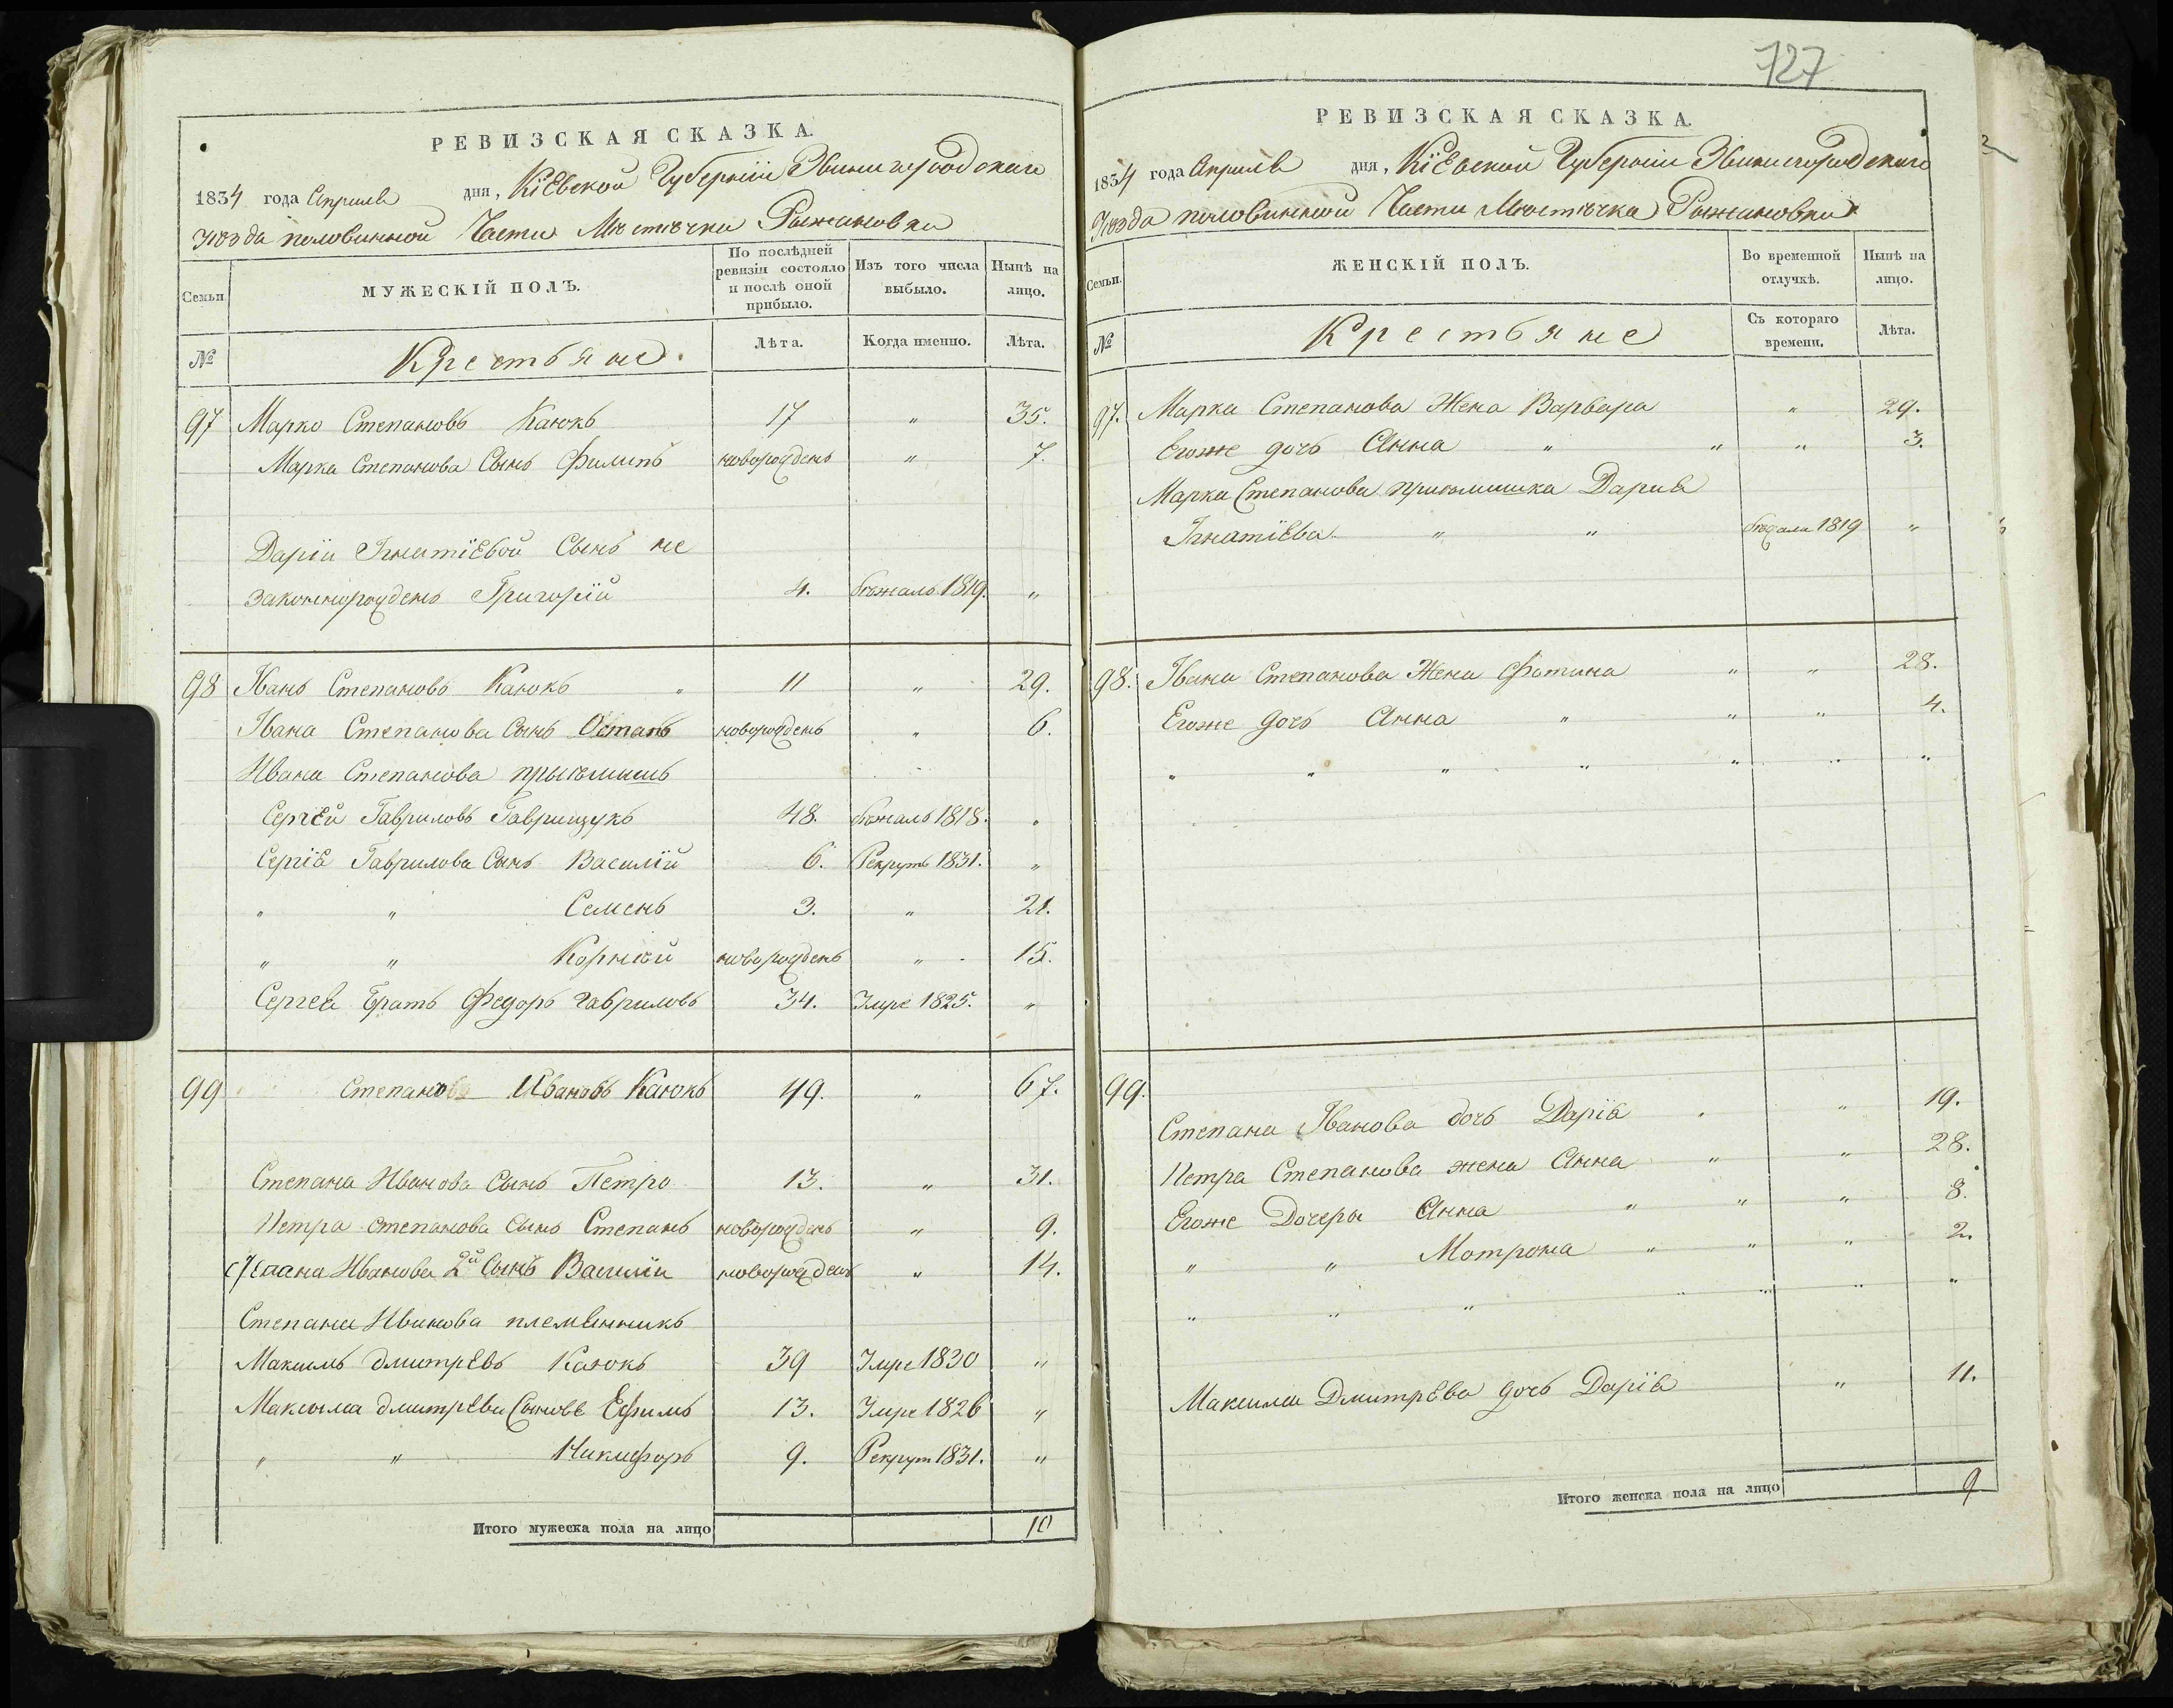 РЕВИЗСКАЯ СКАЗКА.
1834 года Априля дня, Кіевской Губерніи Звинигородскаго
Уѣзда половинной Части Мѣстѣчка Рыжановки
Семьи
МУЖЕСКІЙ ПОЛЪ.
По послѣдней ревизіи состояло и послѣ оной прибыло.
Изъ того числа выбыло.
Нынѣ на лицо.
№
Крестьяне.
Лѣта.
Когда именно.
Лѣта.
97 Марко Степановъ Каюкъ 17 " 35.
Марка Степанова Сынъ Филипъ новорожденъ " 7.
Даріи Игнатіевой Сынъ не
законнорожденъ Григорій 4. бѣжалъ 1819. "
98 Иванъ Степановъ Каюкъ " 11 " 29.
Ивана Степанова Сынъ Остапъ новорожденъ " 6.
Ивана Степанова прыѣмышъ
Сергѣй Гавриловъ Гаврищукъ 48. бѣжалъ 1818. "
Сергія Гаврилова Сынъ Василій 6. Рекрутъ 1831. "
" " Семенъ 3. " 21.
" " Корнѣй новорожденъ " 15.
Сергея Братъ Федоръ Гавриловъ 34. Умре 1825. "
99 Степанъ Ивановъ Каюкъ 49. " 67.
Степана Иванова Сынъ Петро 13. " 31.
Петра Степанова Сынъ Степанъ новорожденъ " 9.
Степана Иванова 2й Сынъ Василій новорожденъ " 14.
Степана Иванова племянникъ
Максимъ Дмитрѣвъ Каюкъ 39 Умре 1830 "
Максима Дмитрѣва Сыновя Ефимъ 13. Умре 1826 "
" " Никифоръ 9. Рекрут 1831. "
Итого мужеска пола на лицо 10
727
РЕВИЗСКАЯ СКАЗКА.
1834 года Априля дня, Кіевской Губерніи Звинигородскаго
Уѣзда половинной Части Мѣстѣчка Рыжановки
Семьи.
ЖЕНСКІЙ ПОЛЪ.
Во временной отлучкѣ.
Нынѣ на лицо.
№
Крестьяне
Съ котораго времени.
Лѣта.
97. Марка Степанова Жена Варвара " 29.
Егоже дочь Анна " " " 3.
Марка Степанова приюмишка Дария
Игнатіева " " бѣдала 1819 "
98. Ивана Степанова Жена Фотина " " 28.
Егоже дочь Анна " " " 4.
" " " " " " "
99.
Степана Иванова дочь Дарія " " 19.
Петра Степанова жена Анна " " 28.
Егоже Дочеры Анна " " " 8.
" " Мотрона " " " 2.
" " " " " " "
Максима Дмитрѣва дочь Дарія " 11.
Итого женска пола на лицо 9